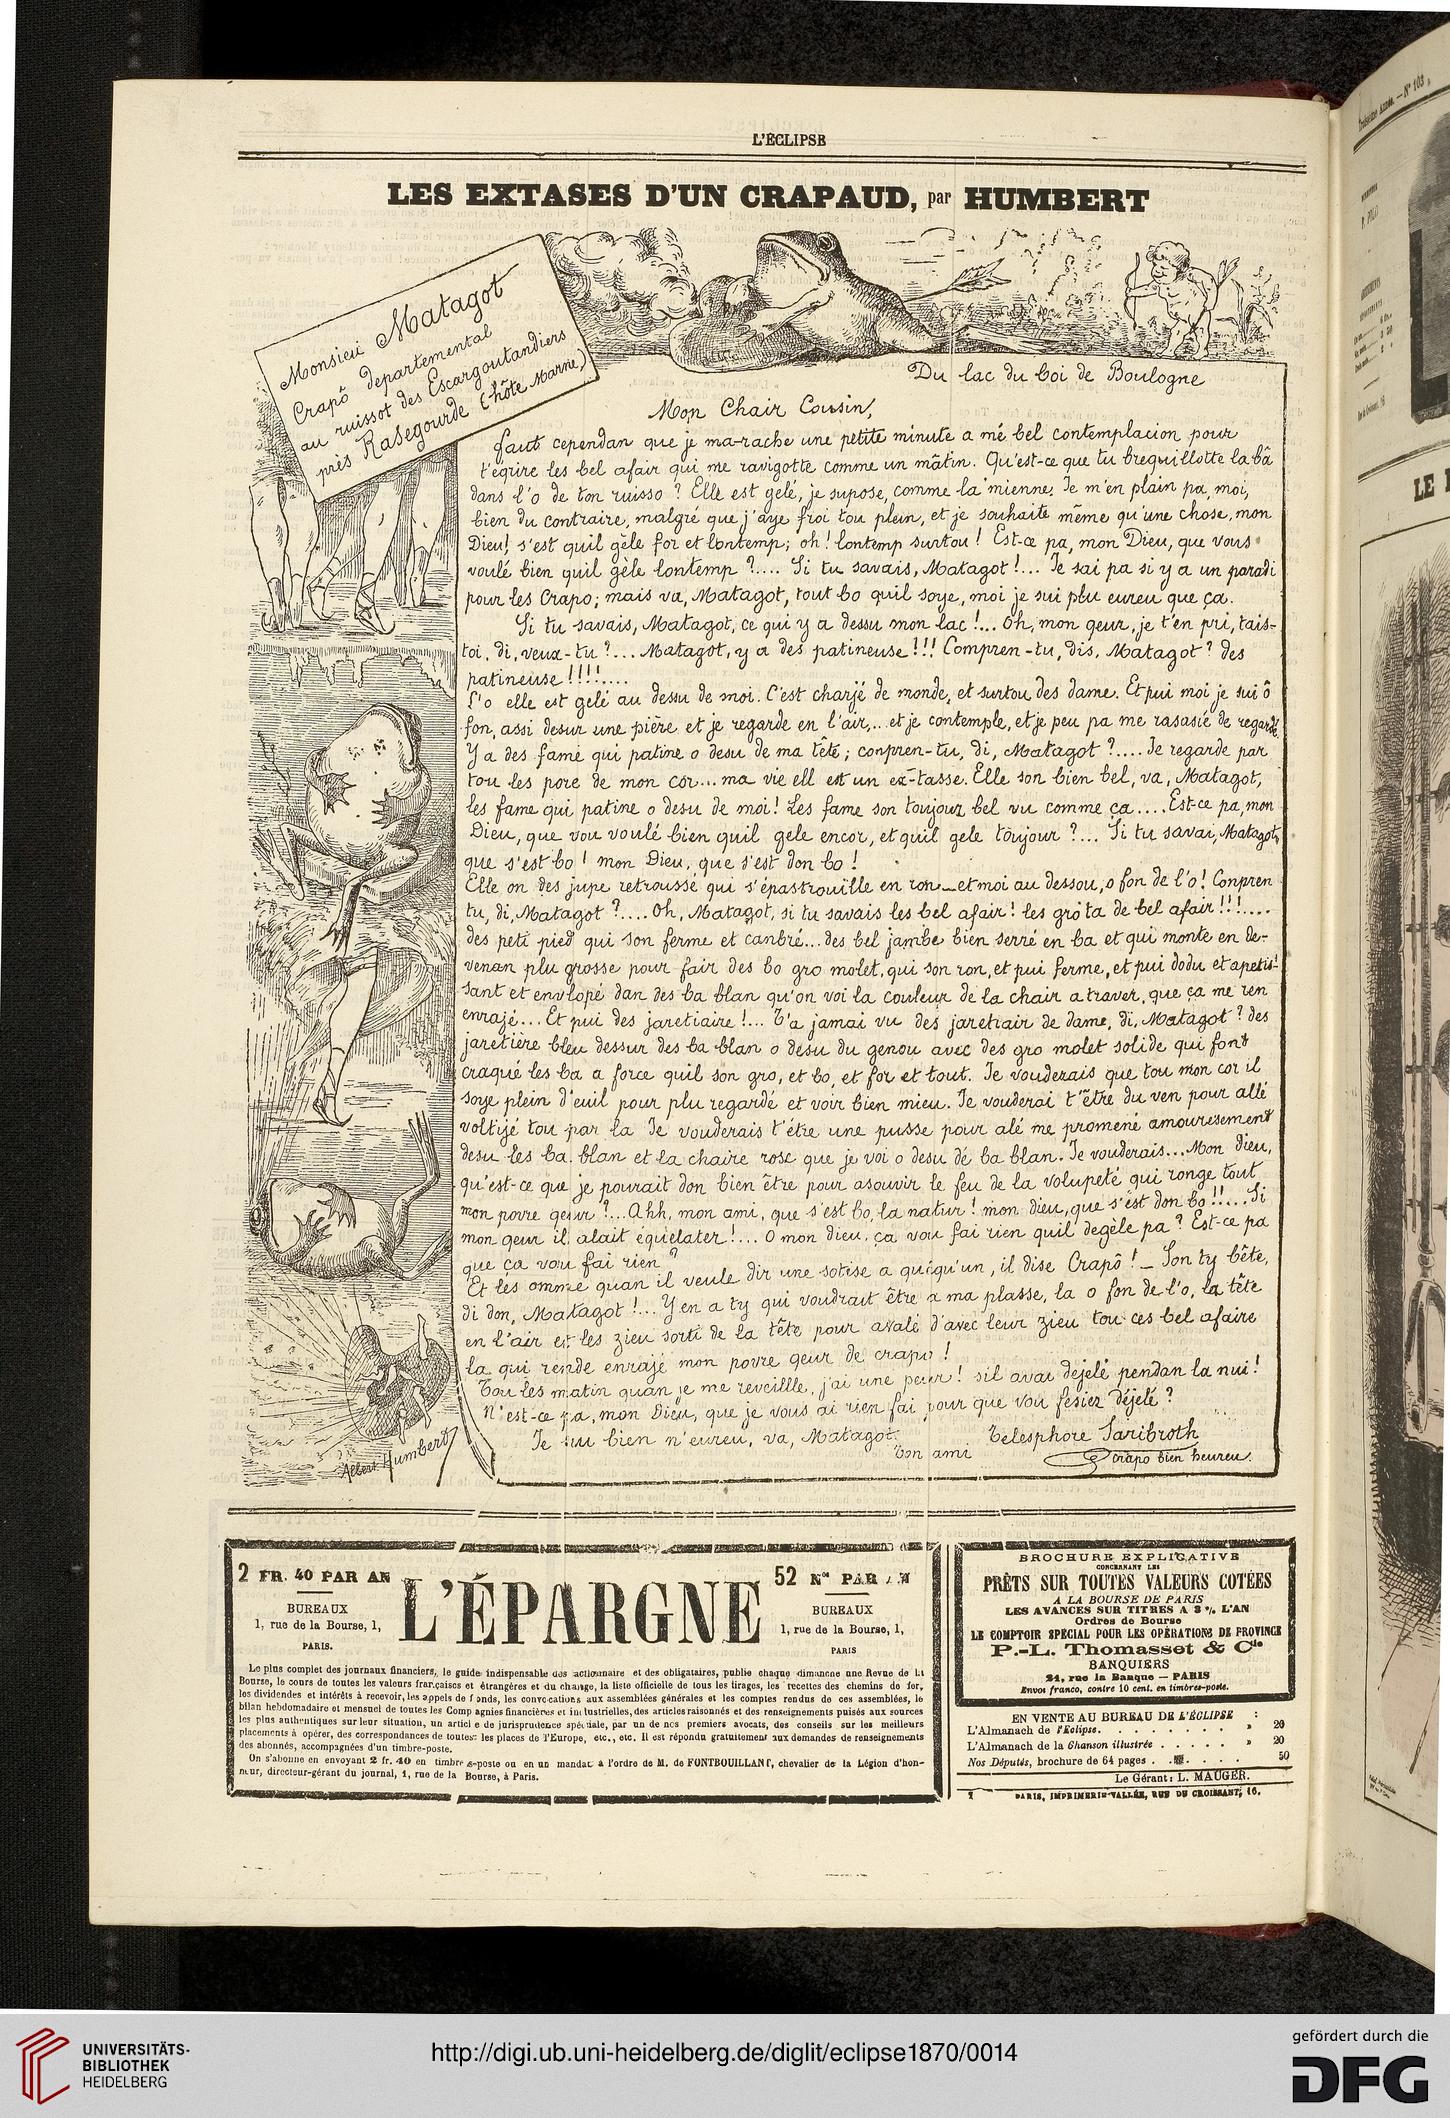 L'ÉCLIPSE
LES EXTASES D'UN CRAPAUD, par HUMBERT
Monsieu Matagot
Crapô departemental
au ruissot des Escargoutandiers
près Rasegourde (hôte Marne)
Du lac du boi de Boulogne
Mon Chair Cousin,
faut cependan que je ma-rache une petite minute a mé bel contemplacion pour
t'eqrire les bel afair qui me ravigotte comme un mâtin. Qu'est-ce que tu brequillotte la bâ
dans l'o de ton ruisso ? Elle est gelé, je supose, comme la mienne. Je m'en plain pa, moi,
bien du contraire, malgré que j'aye froi tou plein, et je souhaite même qu'une chose, mon
Dieu! s'est quil gèle for et lontemp; oh! lontemp surtou! Est-ce pa, mon Dieu, que vous
voulé bien quil gèle lontemp ?.... Si tu savais, Matagot!... Je sai pa si y a un paradi
pour les Crapo; mais va, Matagot, tout bo quil soye, moi je sui plu eureu que ça.
Si tu savais, Matagot, ce qui y a dessu mon lac !... Oh, mon qeur, je t'en pri, tais-
toi, di, veux-tu ?... Matagot, y a des patineuse !!! Compren-tu, dis, Matagot ? des
patineuse !!!!....
L'o elle est gelé au dessu de moi. C'est charjé de monde, et surtou des dame. Et pui moi je sui ô
fon, assi desur une pière et je regarde en l'air,.. et je contemple, et je peu pa me rasasié de regardé.
Y a des fame qui patine o desu de ma tête; conpren-tu, di, Matagot ?.... Je regarde par
tou les pore de mon cor... ma vie ell est un ex-tasse. Elle son bien bel, va, Matagot,
les fame qui patine o desu de moi! Les fame son toujour bel vu comme ça .... Est-ce pa, mon
Dieu, que vou voulé bien quil gele encor, et quil gele toujour ?... Si tu savai, Matagot,
que s'est bo ! mon Dieu, que s'est don bo !
Elle on des jupe retroussé qui s'épastrouille en ron... et moi au dessou, o fon de l'o! Conpren
tu, di, Matagot ?.... Oh, Matagot, si tu savais les bel afair! les gro ta de bel afair!!!....
des peti pied qui son ferme et canbré... des bel jambe bien serré en ba et qui monte en de-
venan plu grosse pour fair des bo gro molet, qui son ron, et pui ferme, et pui dodu et apetis-
sant et envlopé dan des ba blan qu'on voi la couleur de la chair a traver, que ça me ren
enrajé... Et pui des jaretiaire !... T'a jamai vu des jaretiair de dame, di, Matagot ? des
jaretière bleu dessur des ba blan o desu du genou avec des gro molet solide qui font
craqué les ba a force quil son gro, et bo, et for et tout. Je vouderais que tou mon cor il
soye plein d'euil pour plu regardé et voir bien mieu. Je vouderai t'être du ven pour allé
voltijé tou par la Je vouderais t'être une pusse pour alé me promené amouresement
desu les ba blan et la chaire rose que je voi o desu dé ba blan. Je vouderais... Mon dieu,
qu'est-ce que je pourait don bien être pour asouvir le feu de la volupeté qui ronge tout
mon povre qeur ?... Ahh, mon ami, que s'est bo, la natur ! mon dieu, que s'est don bo !!.... Si
mon qeur il alait équelater !... O mon dieu, ça vou fai rien quil degèle pa ? Est-ce pa
que ça vou fai rien ?
Et les omme quan il veule dir une sotise a quéqu'un, il dise Crapô ! — Son ty bête,
di don, Matagot !... Y en a ty qui voudrait être a ma plasse, la o fon de l'o, la tête
en l'air et les zieu sorti de la tête pour avalé d'avec leur zieu tou ces bel afaire
la qui rende enrajé mon povre qeur de crapo !
Tou les matin quan je me reveillle, j'ai une peur ! sil avai déjelé pendan la nui !
N'est-ce pa, mon Dieu, que je vous ai rien fai pour que vou fesiez déjelé ?
Je sui bien n'eureu, va, Matagot.
Ton ami
Telesphore Saribroth
Crapo bien heureu.
Albert Humbert
2 FR. 40 PAR AN
BUREAUX
1, rue de la Bourse, 1,
PARIS.
L'ÉPARGNE
52 Nos PAR AN
BUREAUX
1, rue de la Bourse, 1,
PARIS
Le plus complet des journaux financiers, le guide indispensable des actionnaire et des obligataires, publie chaque dimanche une Revue de la
Bourse, le cours de toutes les valeurs françaises et étrangères et du change, la liste officielle de tous les tirages, les recettes des chemins de fer,
les dividendes et intérêts à recevoir, les appels de fonds, les convocations aux assemblées générales et les comptes rendus de ces assemblées, le
bilan hebdomadaire et mensuel de toutes les Compagnies financières et industrielles, des articles raisonnés et des renseignements puisés aux sources
les plus authentiques sur leur situation, un article de jurisprudence spéciale, par un de nos premiers avocats, des conseils sur les meilleurs
placements à opérer, des correspondances de toutes les places de l'Europe, etc., etc. Il est répondu gratuitement aux demandes de renseignements
des abonnés, accompagnées d'un timbre-poste.
On s'abonne en envoyant 2 fr. 40 en timbres-poste ou en un mandat à l'ordre de M. de FONTBOUILLANT, chevalier de la Légion d'hon-
neur, directeur-gérant du journal, 1, rue de la Bourse, à Paris.
BROCHURE EXPLICATIVE
CONCERNANT LES
PRÊTS SUR TOUTES VALEURS COTÉES
A LA BOURSE DE PARIS
LES AVANCES SUR TITRES A 3 % L'AN
Ordres de Bourse
LE COMPTOIR SPÉCIAL POUR LES OPÉRATIONS DE PROVINCE
P.-L. Thomasset & Cie
BANQUIERS
24, rue la Banque — PARIS
Envoi franco, contre 10 cent. en timbres-poste.
EN VENTE AU BUREAU DE L'ÉCLIPSE :
L'Almanach de l'Eclipse. . . . . . . . . » 20
L'Almanach de la Chanson illustrée . . . . . » 20
Nos Députés, brochure de 64 pages . . . . . . 50
Le Gérant: L. MAUGER.
PARIS, IMPRIMERIE VALLÉE, RUE DU CROISSANT, 16.
Troisième Année. — N° 103
LE
UNIVERSITÄTS-
BIBLIOTHEK
HEIDELBERG
http://digi.ub.uni-heidelberg.de/diglit/eclipse1870/0014
gefördert durch die
DFG